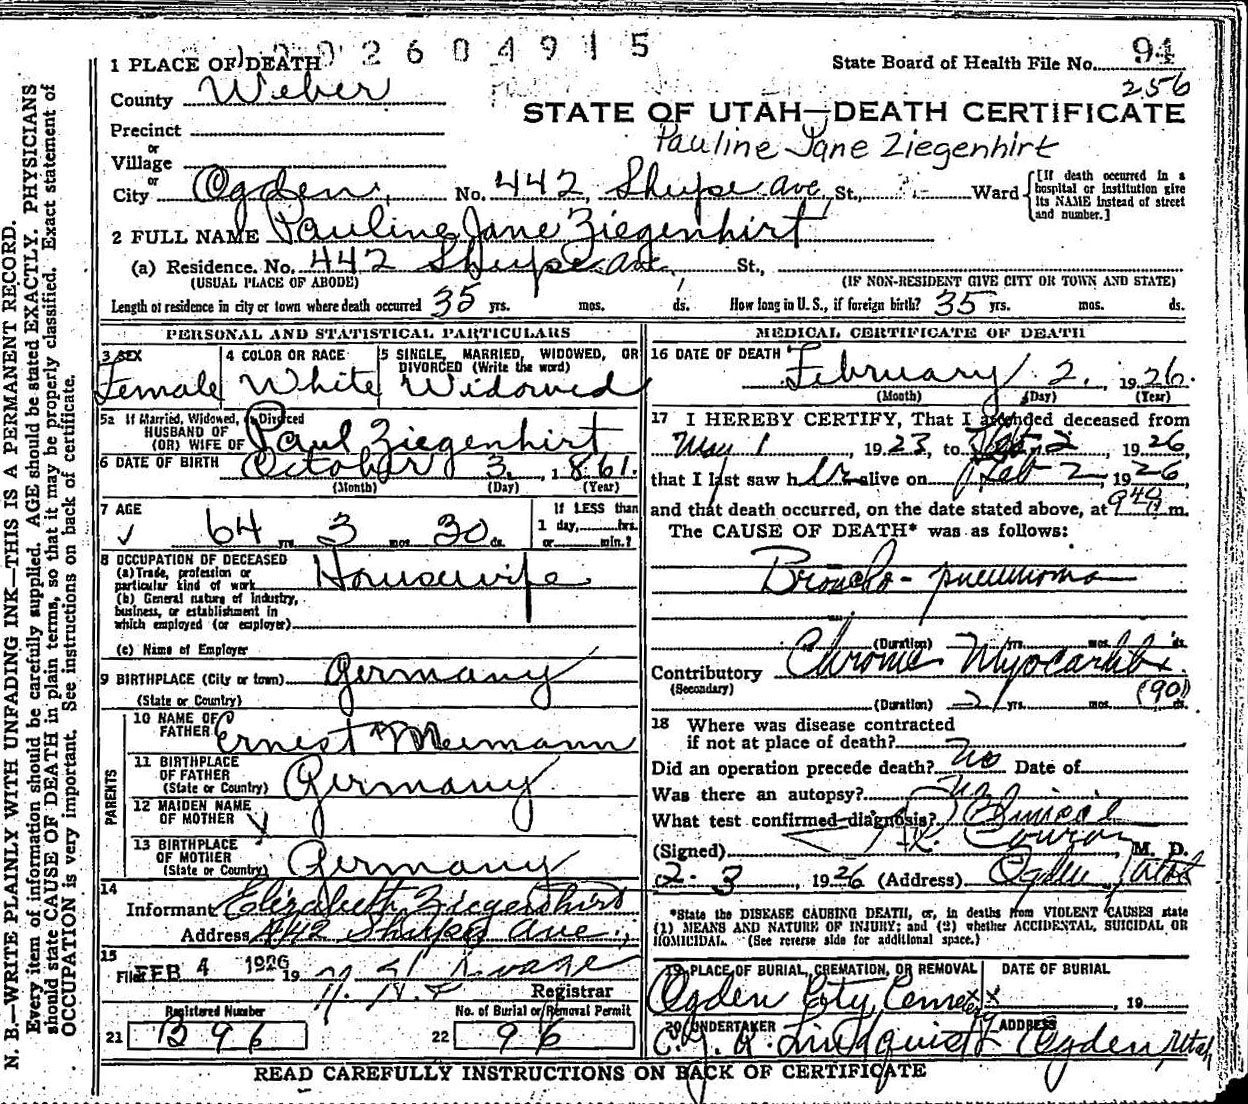 2604915
1 PLACE OF DEATH
State Board of Health File No. 94
256
County Weber
STATE OF UTAH—DEATH CERTIFICATE
Precinct
or
Pauline Jane Ziegenhirt
Village
or
City Ogden, No. 442 Ave St., Ward
[If death occurred in a hospital or institution give its NAME instead of street and number.]
2 FULL NAME Pauline Jane Ziegenhirt
(a) Residence. No. 442 Ave, St.,
(USUAL PLACE OF ABODE) (IF NON-RESIDENT GIVE CITY OR TOWN AND STATE)
Length of residence in city or town where death occurred 35 yrs. mos. ds. How long in U. S., if foreign birth? 35 yrs. mos. ds.
PERSONAL AND STATISTICAL PARTICULARS
3 SEX
Female
4 COLOR OR RACE
White
5 SINGLE, MARRIED, WIDOWED, OR DIVORCED (Write the word)
Widowed
5a If Married, Widowed, or Divorced
HUSBAND OF
(OR) WIFE OF Paul Ziegenhirt
6 DATE OF BIRTH October 3, 1861
(Month) (Day) (Year)
7 AGE
64 yrs 3 mos 30 ds.
If LESS than
1 day, hrs.
or min.?
8 OCCUPATION OF DECEASED
(a) Trade, profession or
particular kind of work Housewife
(b) General nature of industry,
business, or establishment in
which employed (or employer)
(c) Name of Employer
9 BIRTHPLACE (City or town) Germany
(State or Country)
PARENTS
10 NAME OF
FATHER Ernest
11 BIRTHPLACE
OF FATHER
(State or Country) Germany
12 MAIDEN NAME
OF MOTHER
13 BIRTHPLACE
OF MOTHER
(State or Country) Germany
14
Informant Elizabeth Ziegenhirt
Address 442 Ave.,
15
Filed FEB 4 1926 19
Registrar
Registered Number
21 B 96
No. of Burial or Removal Permit
22 96
MEDICAL CERTIFICATE OF DEATH
16 DATE OF DEATH
February 2, 1926
(Month) (Day) (Year)
17 I HEREBY CERTIFY, That I attended deceased from
May 1 1923, to Feb 2, 1926,
that I last saw her alive on Feb 2, 1926
and that death occurred, on the date stated above, at 940 m.
The CAUSE OF DEATH* was as follows:
Broncho-pneumonia
(Duration) yrs. mos. ds.
Contributory Chronic Myocarditis
(Secondary)
(90)
(Duration) 2 yrs. mos. ds.
18 Where was disease contracted
if not at place of death?
Did an operation precede death? no Date of
Was there an autopsy? no
What test confirmed diagnosis? Clinical
(Signed) M. D.
2-3, 1926 (Address) Ogden Utah
*State the DISEASE CAUSING DEATH, or, in deaths from VIOLENT CAUSES state
(1) MEANS AND NATURE OF INJURY; and (2) whether ACCIDENTAL, SUICIDAL OR
HOMICIDAL. (See reverse side for additional space.)
19 PLACE OF BURIAL, CREMATION, OR REMOVAL
Ogden City Cemetery
DATE OF BURIAL
, 19
20 UNDERTAKER
Lindquist
ADDRESS
Ogden, Utah
READ CAREFULLY INSTRUCTIONS ON BACK OF CERTIFICATE
N. B.—WRITE PLAINLY WITH UNFADING INK—THIS IS A PERMANENT RECORD.
Every item of information should be carefully supplied. AGE should be stated EXACTLY. PHYSICIANS
should state CAUSE OF DEATH in plain terms, so that it may be properly classified. Exact statement of
OCCUPATION is very important. See instructions on back of certificate.